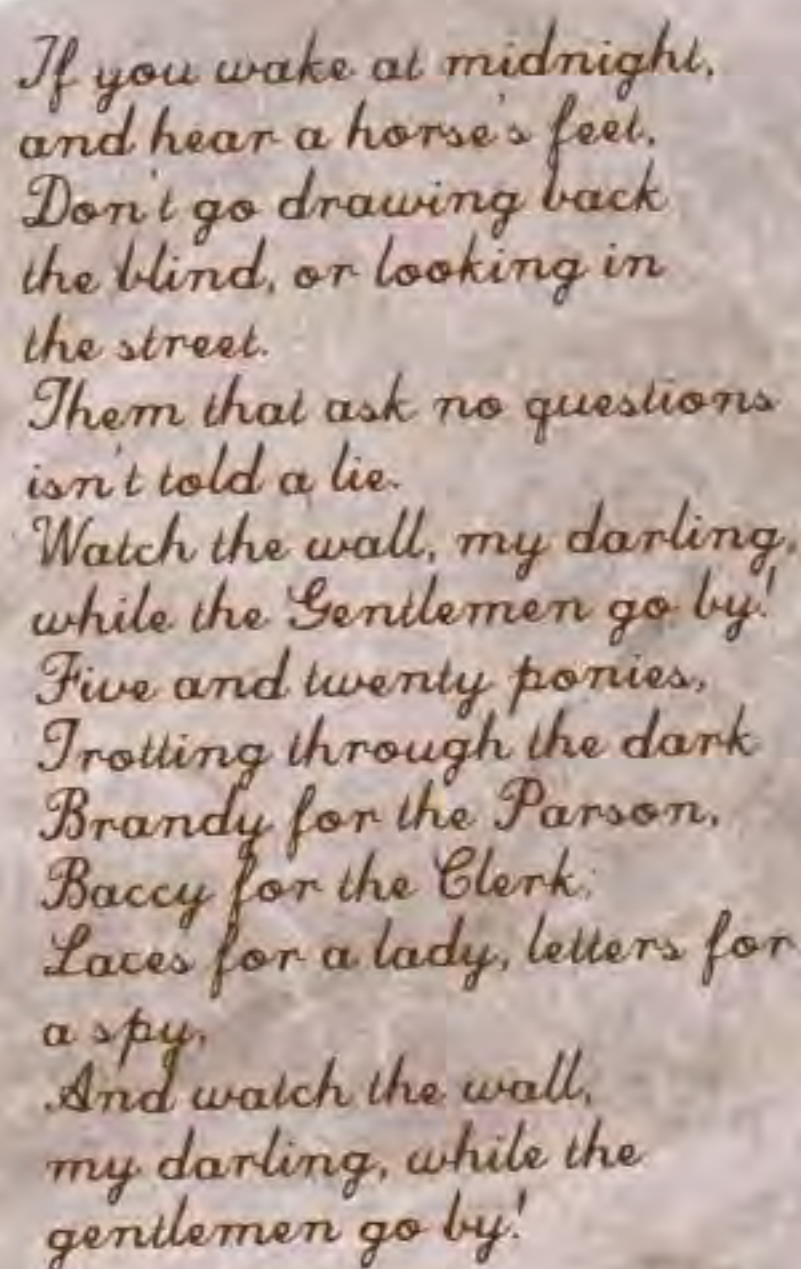 If you wake at midnight,
and hear a horse's feet,
Don't go drawing back
the blind, or looking in
the street.
Them that ask no questions
isn't told a lie.
Watch the wall, my darling,
while the Gentlemen go by!
Five and twenty ponies,
Trotting through the dark
Brandy for the Parson,
Baccy for the Clerk;
Laces for a lady, letters for
a spy,
And watch the wall,
my darling, while the
gentlemen go by!